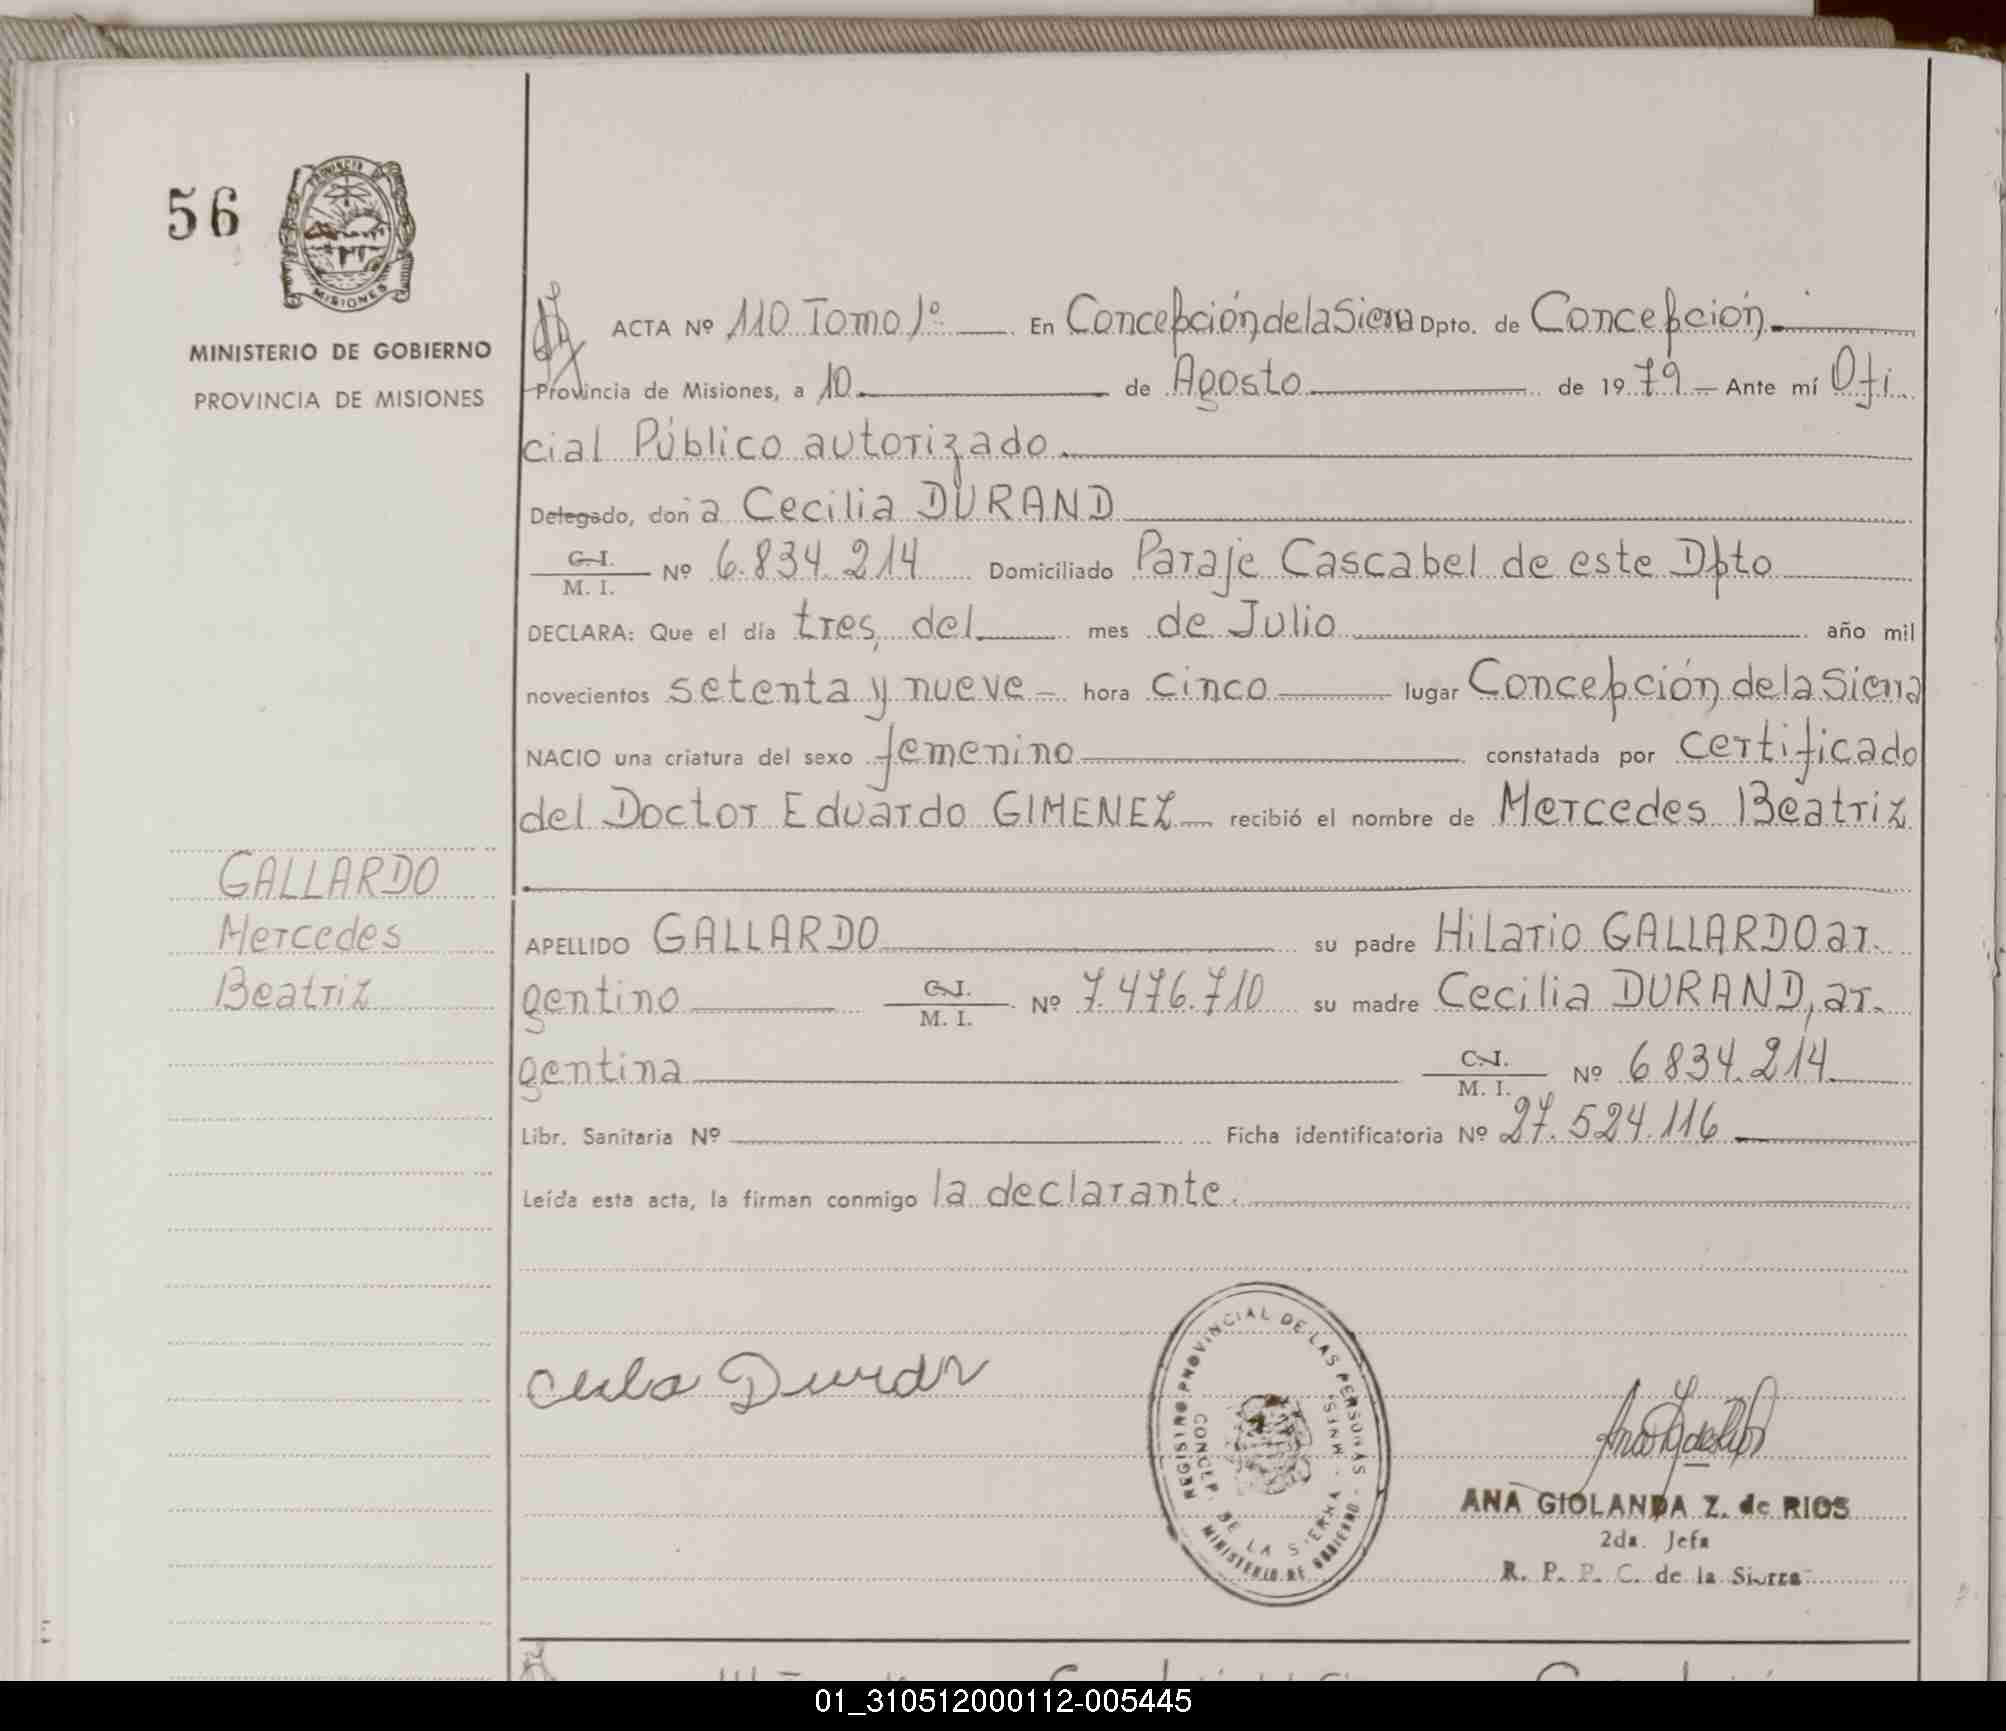 56
PROVINCIA DE
MISIONES
MINISTERIO DE GOBIERNO
PROVINCIA DE MISIONES
GALLARDO
Mercedes
Beatriz
ACTA Nº 110 Tomo 1º En Concepción de la Sierra Dpto. de Concepción
Provincia de Misiones, a 10 de Agosto de 1979 Ante mí Ofi
cial Público autorizado
Delegado, doña Cecilia DURAND
C. I.
M. I. Nº 6.834.214 Domiciliado Paraje Cascabel de este Dpto
DECLARA: Que el día tres, del mes de Julio año mil
novecientos setenta y nueve hora cinco lugar Concepción de la Sierra
NACIO una criatura del sexo femenino constatada por certificado
del Doctor Eduardo GIMENEZ recibió el nombre de Mercedes Beatriz
APELLIDO GALLARDO su padre Hilario GALLARDO ar.
gentino C. I. M. I. Nº 7.476.710 su madre Cecilia DURAND, ar.
gentina C. I. M. I. Nº 6834.214
Libr. Sanitaria Nº Ficha identificatoria Nº 27.524.116
Leída esta acta, la firman conmigo la declarante.
REGISTRO PROVINCIAL DE LAS PERSONAS - MINISTERIO DE GOBIERNO
CONCEP. DE LA SIERRA - MNES.
ANA GIOLANDA Z. de RIOS
2da. Jefa
R. P. P. C. de la Sierra
01_310512000112-005445